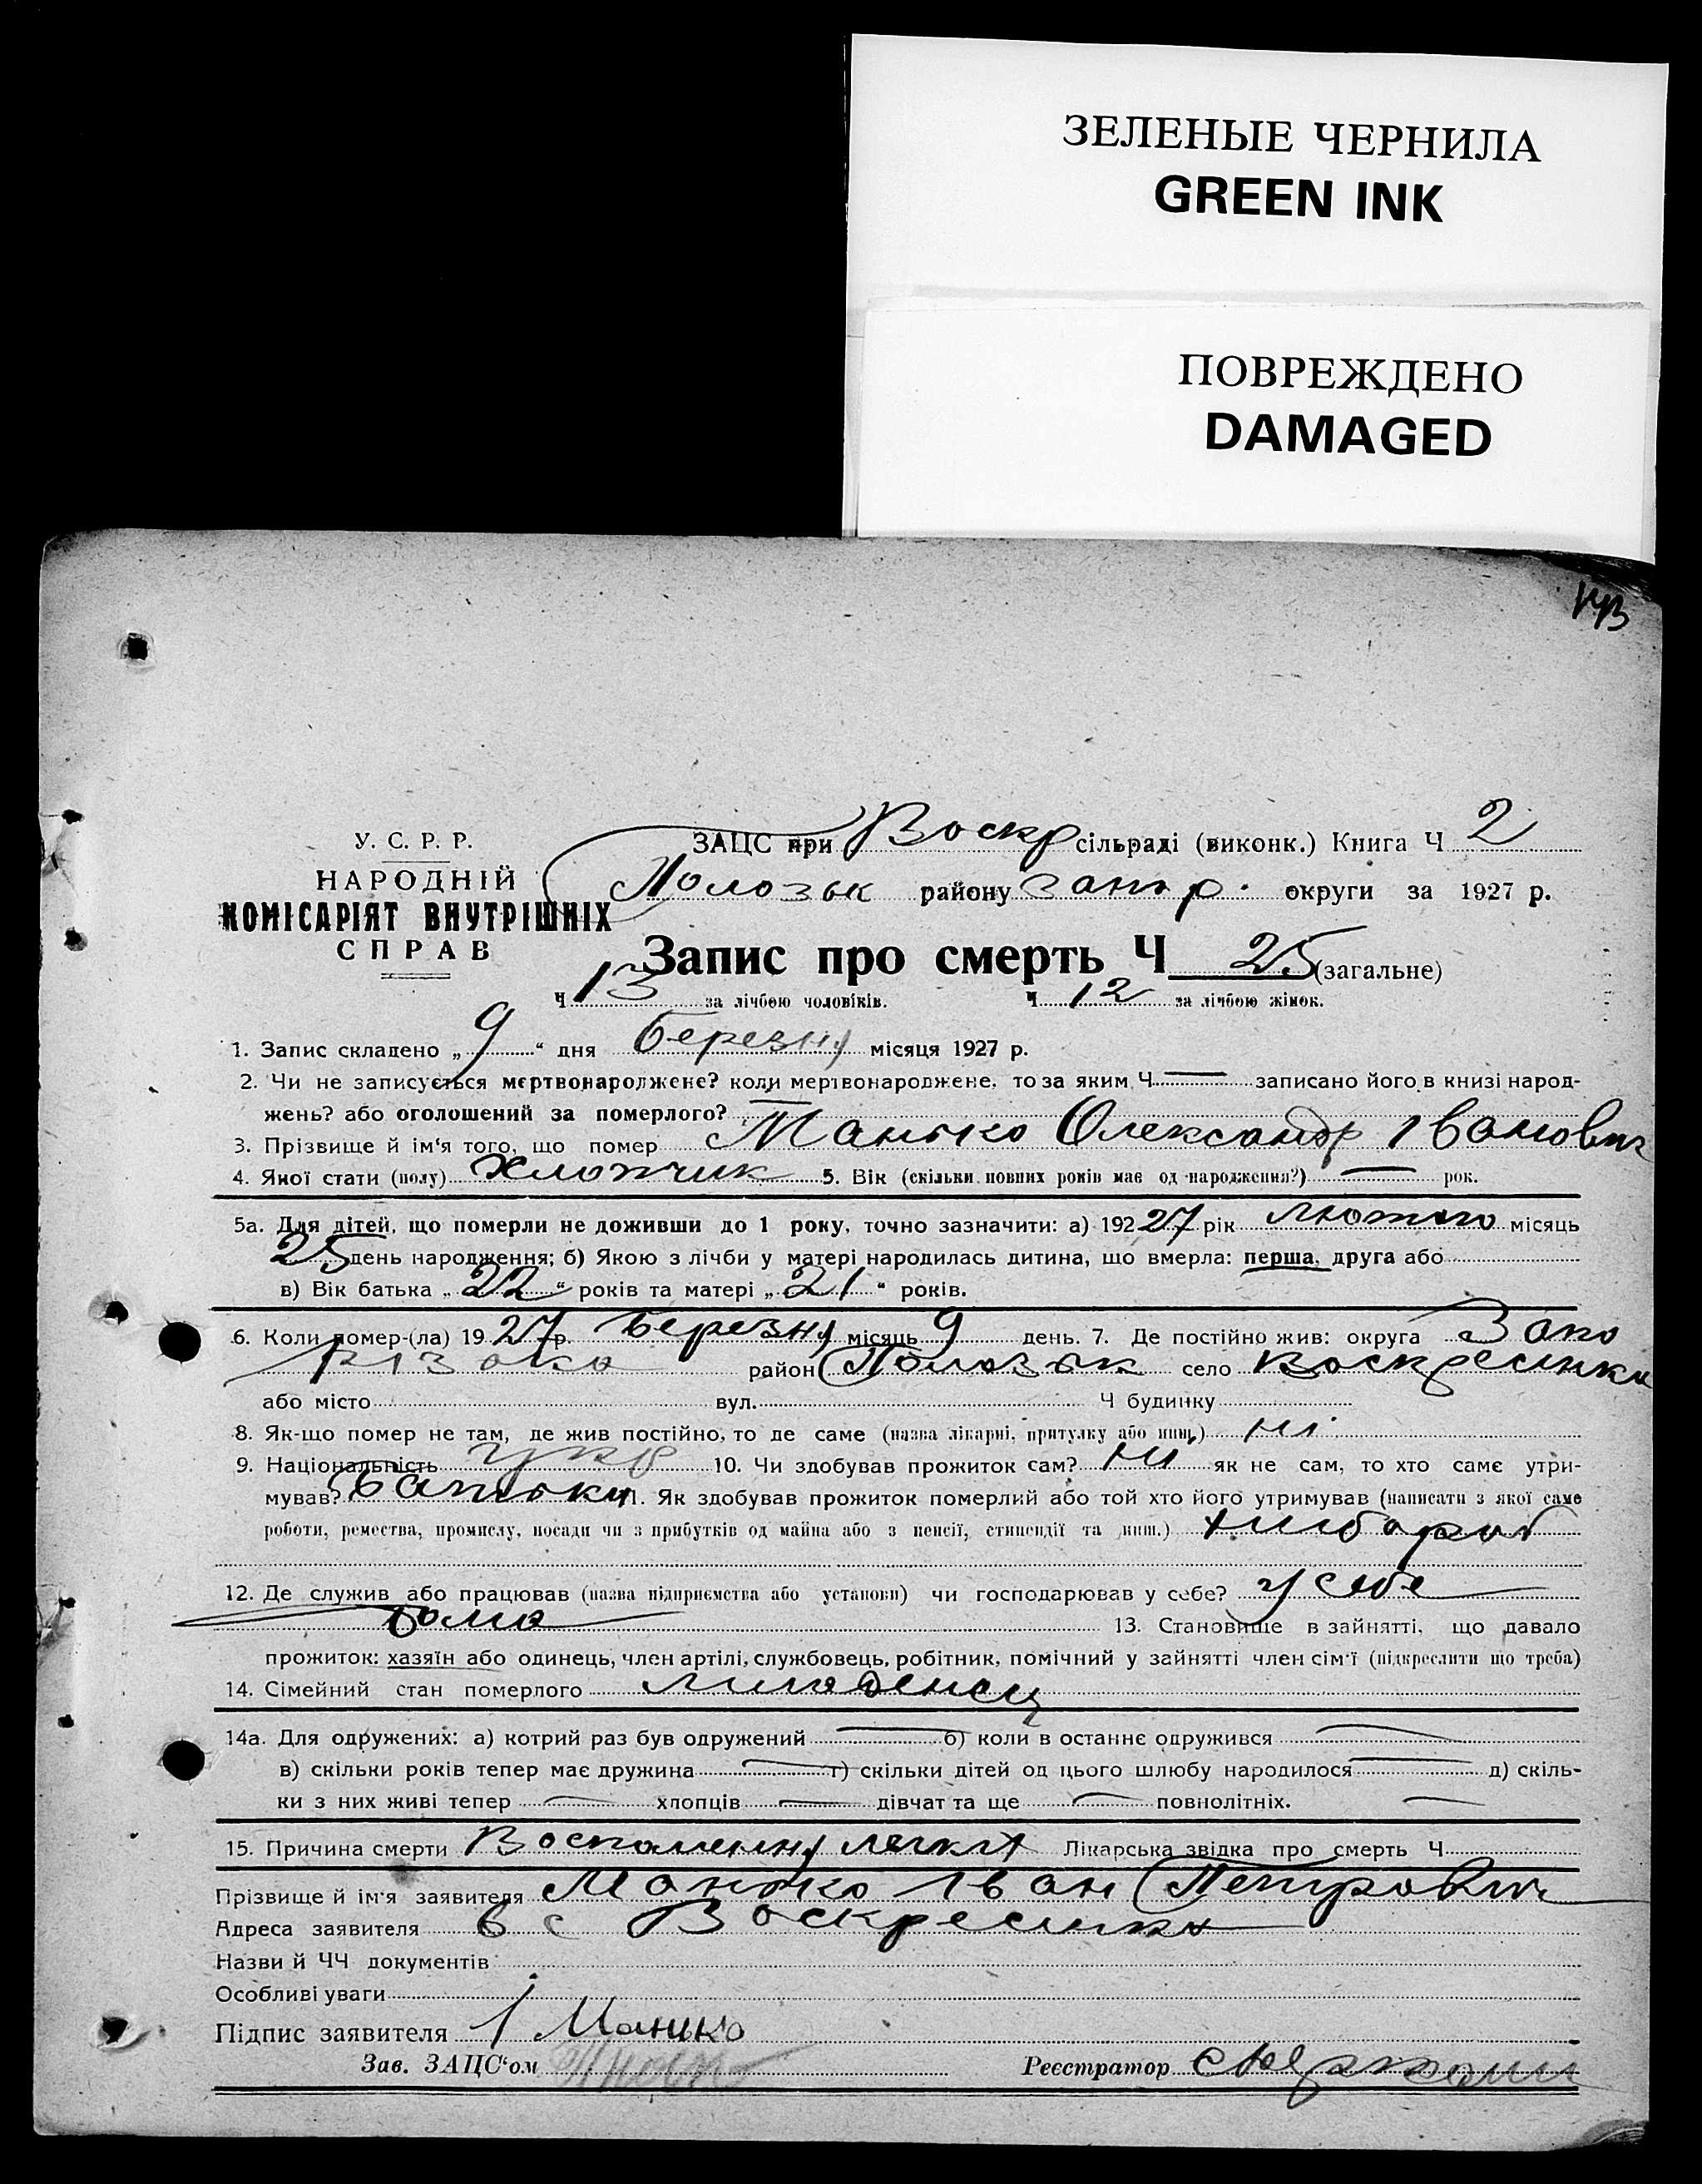 ЗЕЛЕНЫЕ ЧЕРНИЛА
GREEN INK
ПОВРЕЖДЕНО
DAMAGED
У. С. Р. Р.
НАРОДНІЙ
КОМІСАРІЯТ ВНУТРІШНІХ
СПРАВ
ЗАЦС при Воскр сільраді (виконк.) Книга Ч 2
Полозьк району Запор. округи за 1927 р.
Запис про смерть Ч 25 (загальне)
Ч 13 за лічбою чоловіків. Ч 12 за лічбою жінок.
1. Запис складено „9“ дня березня місяця 1927 р.
2. Чи не записується мертвонароджене? коли мертвонароджене, то за яким Ч — записано його в книзі народ-
жень? або оголошений за померлого? —
3. Прізвище й ім'я того, що помер Манько Олександр Іванович
4. Якої стати (полу) Хлопчик 5. Вік (скільки повних років має од народження?) — рок.
5а. Для дітей, що померли не доживши до 1 року, точно зазначити: а) 192 27 рік лютого місяць
25 день народження; б) Якою з лічби у матері народилась дитина, що вмерла: перша, друга або
в) Вік батька „22“ років та матері „21“ років.
6. Коли помер-(ла) 19 27 р. березня місяць 9 день. 7. Де постійно жив: округа Запо
різька район Полозьк село Воскресенка
або місто вул. Ч будинку
8. Як-що помер не там, де жив постійно, то де саме (назва лікарні, притулку або инш.) ні
9. Національність укр 10. Чи здобував прожиток сам? ні як не сам, то хто саме утри-
мував? Батьки 11. Як здобував прожиток померлий або той хто його утримував (написати з якої саме
роботи, ремества, промислу, посади чи з прибутків од майна або з пенсії, стипендії та инш.) хлібороб
12. Де служив або працював (назва підприємства або установи) чи господарював у себе? у себе
дома 13. Становище в зайнятті, що давало
прожиток: хазяїн або одинець, член артілі, службовець, робітник, помічний у зайнятті член сім'ї (підкреслити що треба)
14. Сімейний стан померлого младенец
14а. Для одружених: а) котрий раз був одружений — б) коли в останнє одружився —
в) скільки років тепер має дружина — г) скільки дітей од цього шлюбу народилося — д) скіль-
ки з них живі тепер — хлопців — дівчат та ще — повнолітніх. —
15. Причина смерти Воспаления легких Лікарська звідка про смерть Ч
Прізвище й ім'я заявителя Манько Іван Петрович
Адреса заявителя в с Воскресенка
Назви й ЧЧ документів
Особливі уваги
Підпис заявителя І Манько
Зав. ЗАЦС'ом
Реєстратор